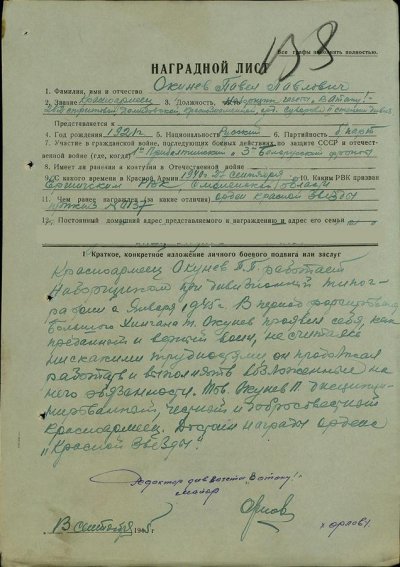 138
Все графы заполнять полностью.
НАГРАДНОЙ ЛИСТ
1. Фамилия, имя и отчество Окунев Павел Павлович
2. Звание Красноармеец 3. Должность, Наборщик газеты „В атаку!"
Представляется к
4. Год рождения 1921 г. 5. Национальность Русский 6. Партийность б/парт
7. Участие в гражданской войне, последующих боевых действиях по защите СССР и отечест-
венной войне (где, когда) 1 Прибалтийский 3 Белорусский фронт
8. Имеет ли ранения и контузии в Отечественной войне
9. С какого времени в Красной Армии 1940 г. 25 сентября 10. Каким РВК призван
РВК, Смоленской области
11. Чем ранее награжден (за какие отличия) орден Красной Звезды
12. Постоянный домашний адрес представляемого к награждению и адрес его семьи
I Краткое, конкретное изложение личного боевого подвига или заслуг
Красноармеец Окунев П.П. работает
наборщиком при дивизионной типог-
рафии с января 1945 г. В период форсирования
Большого Хингана т. Окунев проявил себя, как
преданный и воин, не считаясь
ни с какими трудностями он продолжал
работать и выполнять возложенные на
него обязанности. Тов. Окунев П. дисципли-
нированный, честный и добросовестный
красноармеец. Достоин награды ордена
„Красной Звезды".
Редактор див. газеты „В атаку!"
майор
Орлов
/Орлов/
13 сентября 1945 г.